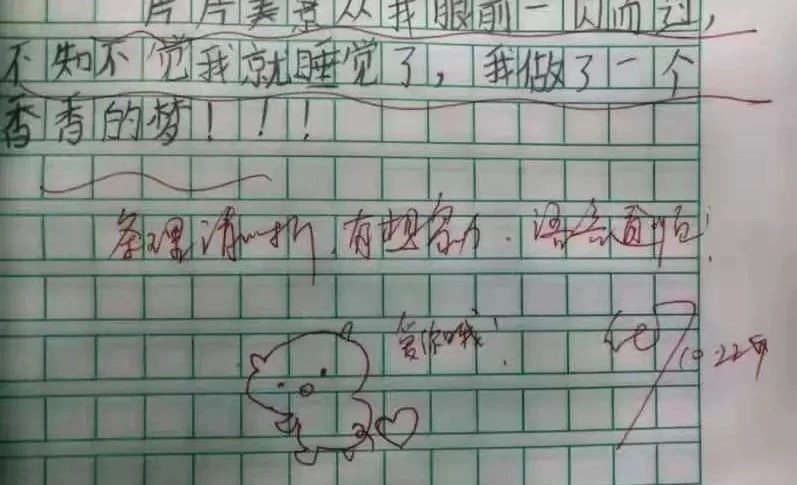 片片美景从我眼前一闪而过，
不知不觉我就睡觉了，我做了一个
香香的梦！！！
条理清晰，有想象力，语言
爱你哦！
10.22